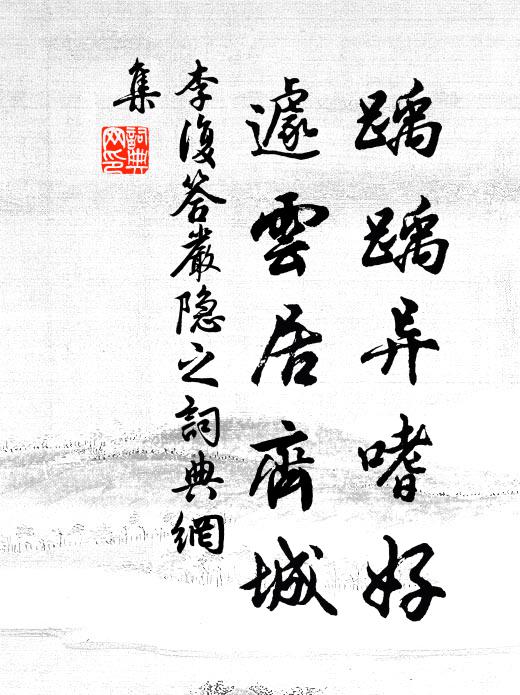 踽踽异嗜好
遽雲居齊城
李復答嚴隐之詞典網
集
詞典
网印